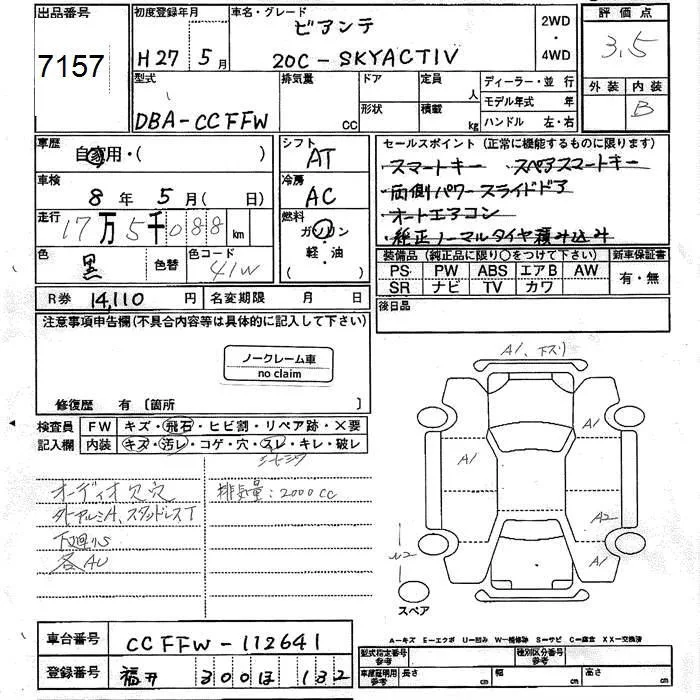 出品番号
7157
初度登録年月
H27 5月
車名・グレード
ビアンテ
20C-SKYACTIV
2WD
・
4WD
評価点
3.5
外装 内装
B
型式
DBA-CCFFW
排気量
CC
ドア
形状
定員
人
積載
kg
ディーラー・並行
モデル年式 年
ハンドル 左・右
車歴
自家用・( )
車検
8年 5月( 日)
走行
17万5千088km
色
黒
色替
色コード
41W
シフト
AT
冷房
AC
燃料
ガソリン
・
軽・油
( )
セールスポイント(正常に機能するものに限ります)
・スマートキー ・スペアスマートキー
・両側パワースライドドア
・オートエアコン
・純正ノーマルタイヤ積み込み
装備品(純正品に限り○をつけて下さい)
PS PW ABS エアB AW
SR ナビ TV カワ
新車保証書
有・無
R券 14,110円
名変期限 月 日
後日品
注意事項申告欄(不具合内容等は具体的に記入して下さい)
ノークレーム車
no claim
修復歴 有〔箇所 〕
検査員
記入欄
FW キズ・飛石・ヒビ割・リペア跡・X要
内装 キズ・汚レ・コゲ・穴・スレ・キレ・破レ
オーディオ欠穴
排気量:2000cc
外アルミA、スタッドレスT
下廻りS
各AU
A1、下スリ
A1
A1
A2
A1
スペア
車台番号 CCFFW-112641
登録番号 福井 300ほ132
A-キズ E-エクボ U-凹み W-補修跡 S-サビ C-腐食 XX-交換済
型式指定番号
参考
種別区分番号
参考
車庫証明用
参考
長さ cm
幅 cm
高さ cm